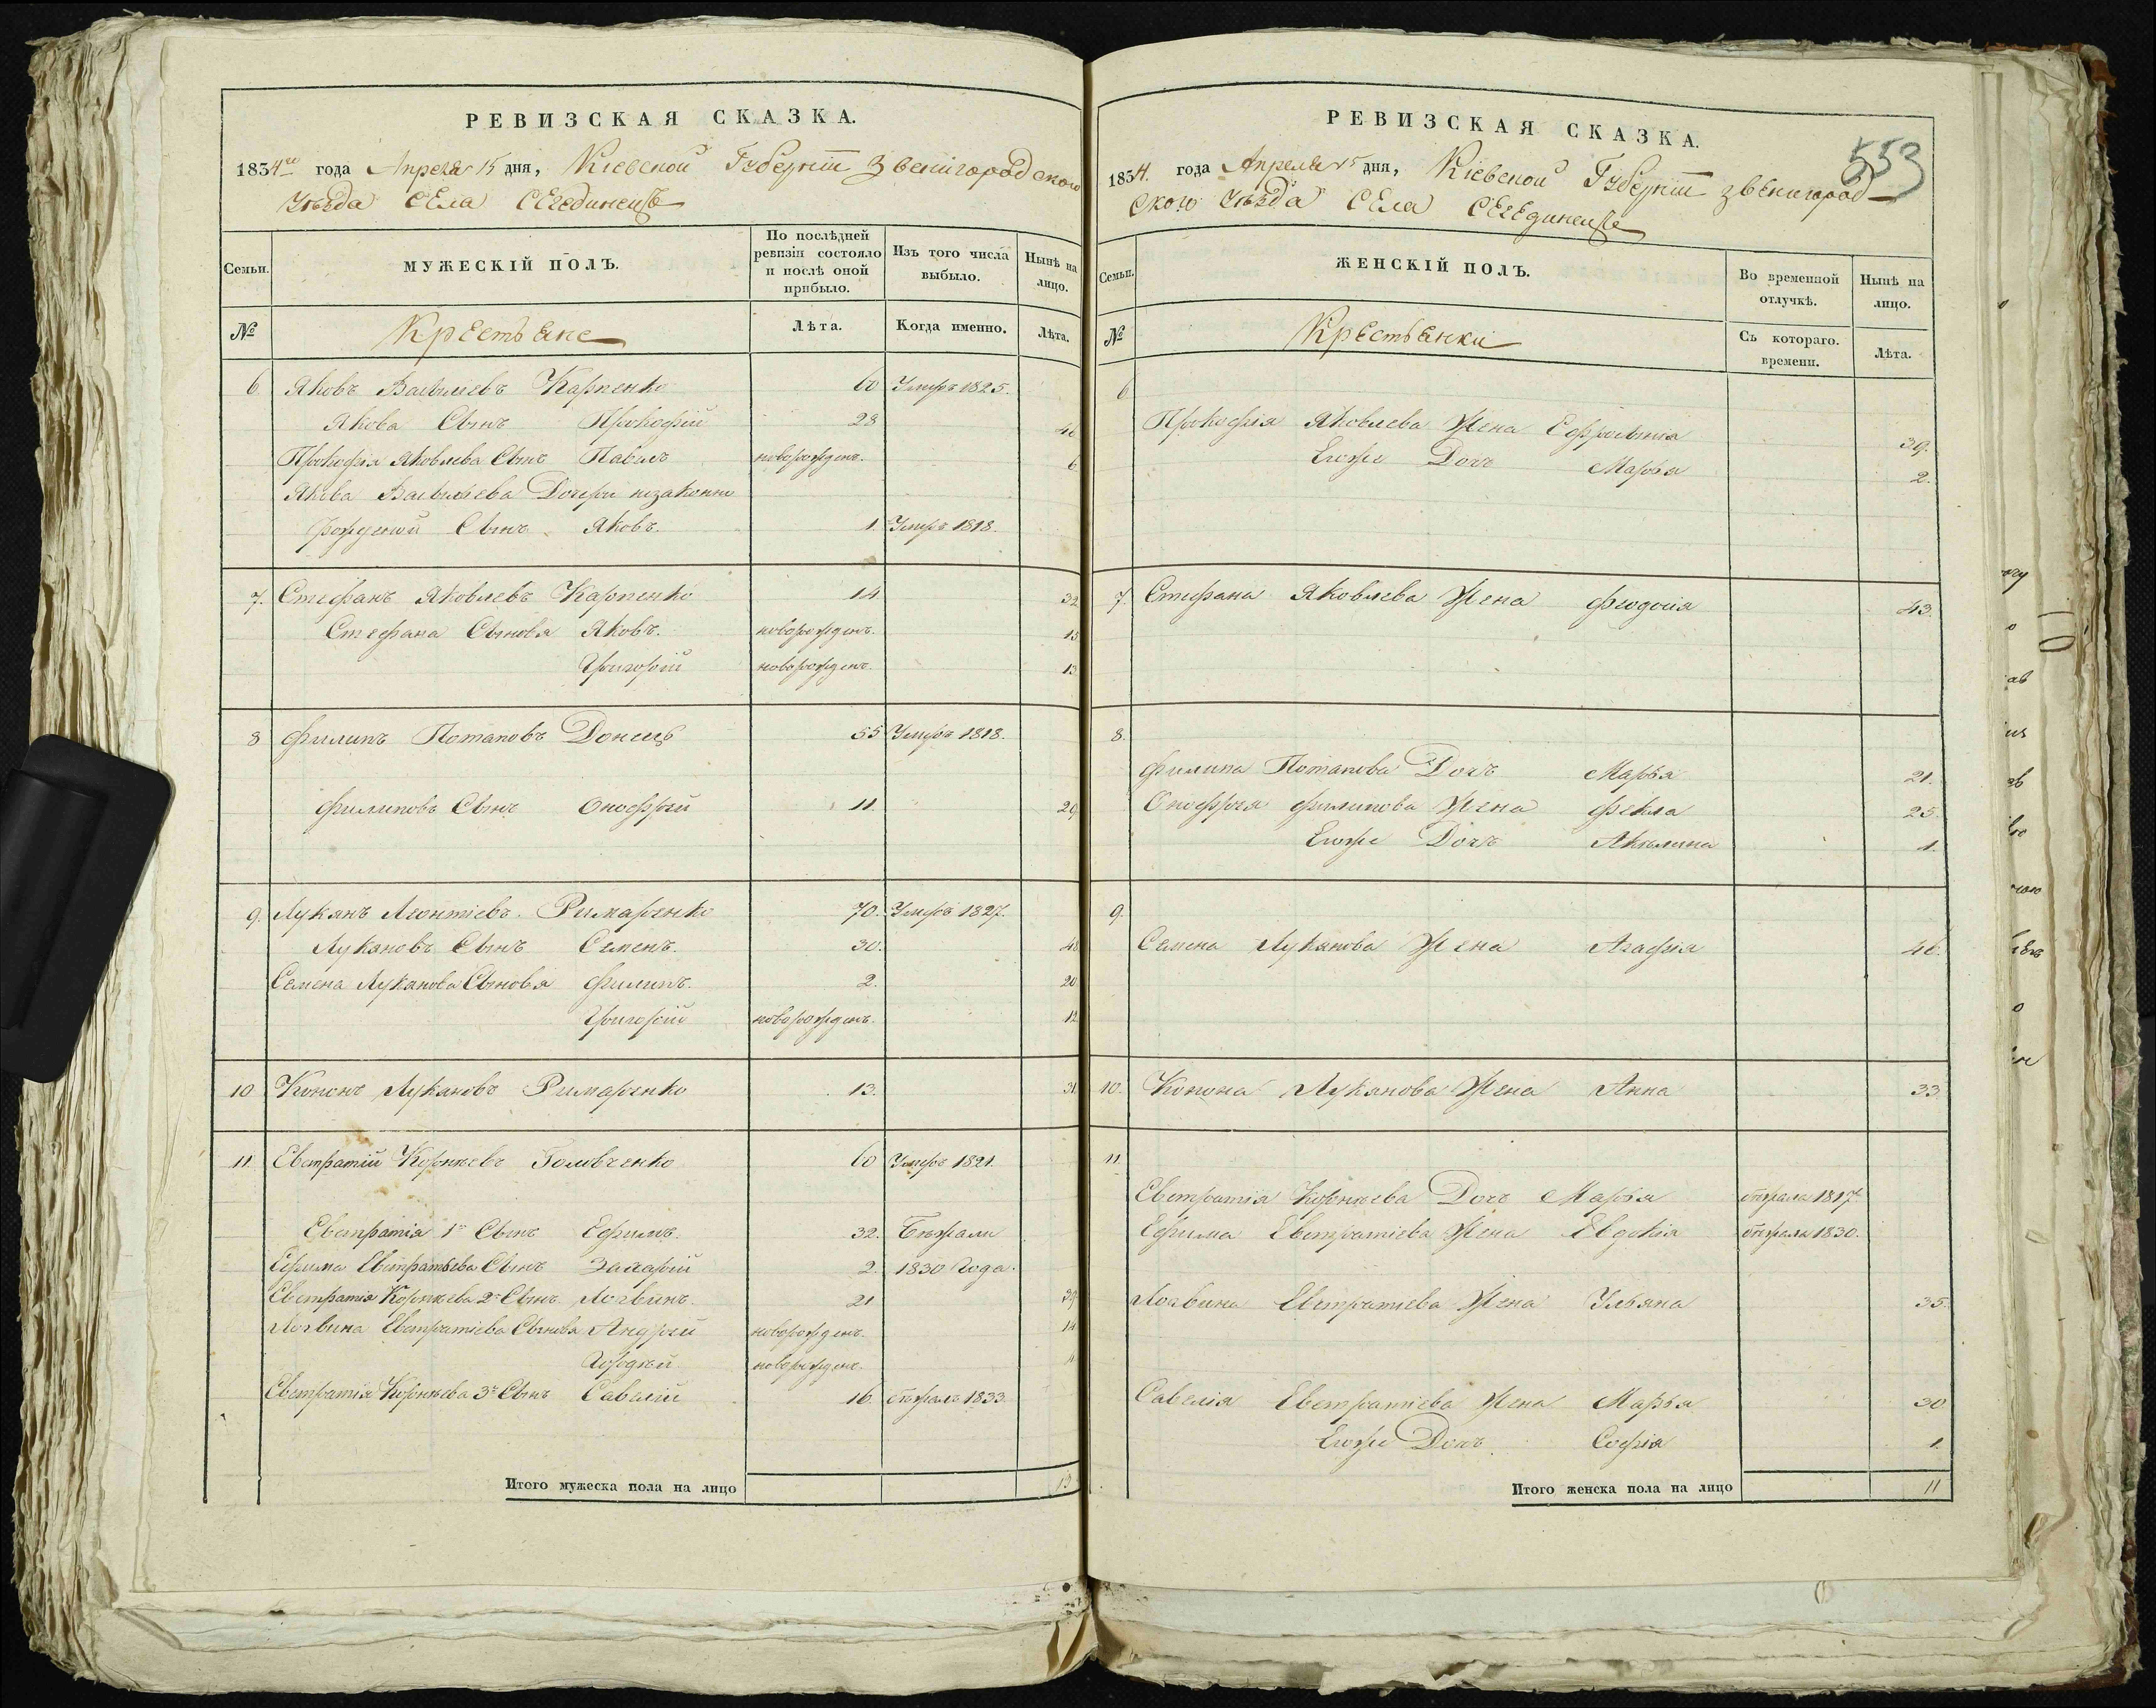 РЕВИЗСКАЯ СКАЗКА.
1834го года Апреля 15 дня, Кіевской Губерніи Звенигородского
Уѣзда Села
Семьи.
МУЖЕСКІЙ ПОЛЪ.
По послѣдней ревизіи состояло и послѣ оной прибыло.
Изъ того числа выбыло.
Нынѣ на лицо.
№
Крестьяне
Лѣта.
Когда именно.
Лѣта.
6 Яковъ Васильевъ Карпенко 60 Умеръ 1825.
Якова Сынъ Прокофій 28 46
Прокофія Яковлева Сынъ Павелъ новорожден. 6
Якова Васильева Дочери незаконно
рожденой Сынъ Яковъ. 1. Умеръ 1818.
7. Стефанъ Яковлевъ Карпенко 14 32
Стефана Сыновья Яковъ. новорожденъ. 15
Григорій новорожденъ. 13
8 Филипъ Потаповъ Донецъ 55 Умеръ 1818.
Филиповъ Сынъ Онофрій 11. 29
9. Лукянъ Леонтіевъ Римаренко 70. Умеръ 1827.
Лукяновъ Сынъ Семенъ. 30. 48
Семена Лукянова Сыновья Филипъ. 2. 20
Григорій новорожденъ. 12
10 Кононъ Лукяновъ Римаренко 13. 31.
11. Евстратій Корнѣевъ Головченко 60 Умеръ 1821.
Евстратія 1й Сынъ Ефимъ. 32. Бѣжали
Ефима Евстратьева Сынъ Захарій 2. 1830 Года.
Евстратія Корнѣева 2й Сынъ Логвинъ. 21 39
Логвина Евстратіева Сыновья Андрей новорожденъ. 14
Гордѣй новорожден.
Евстратія Корнѣева 3й Сынъ Савелій 16. бѣжалъ 1833.
Итого мужеска пола на лицо 12
РЕВИЗСКАЯ СКАЗКА.
553
1834. года Апреля 15 дня, Кіевской Губерніи Звенигород-
ского Уѣзда Села
Семьи.
ЖЕНСКІЙ ПОЛЪ.
Во временной отлучкѣ.
Нынѣ на лицо.
№
Крестьянки
Съ котораго. времени.
Лѣта.
6
Прокофія Яковлева Жена Ефросынія 39.
Егоже Дочъ Марья 2.
7. Стефана Яковлева Жена Феодосія 43.
8.
Филипа Потапова Дочъ Марья 21.
Онофрія Филипова Жена Фекла 25.
Егоже Дочъ Акилина 1.
9.
Семена Лукянова Жена Агафія 46.
10. Конона Лукянова Жена Анна 33.
11.
Евстратія Корнѣева Дочъ Марья бѣжала 1817.
Ефима Евстратіева Жена Евдокія бѣжала 1830.
Логвина Евстратіева Жена Ульяна 35.
Савелія Евстратіева Жена Марья 30
Егоже Дочъ Софія 1.
Итого женска пола на лицо 11